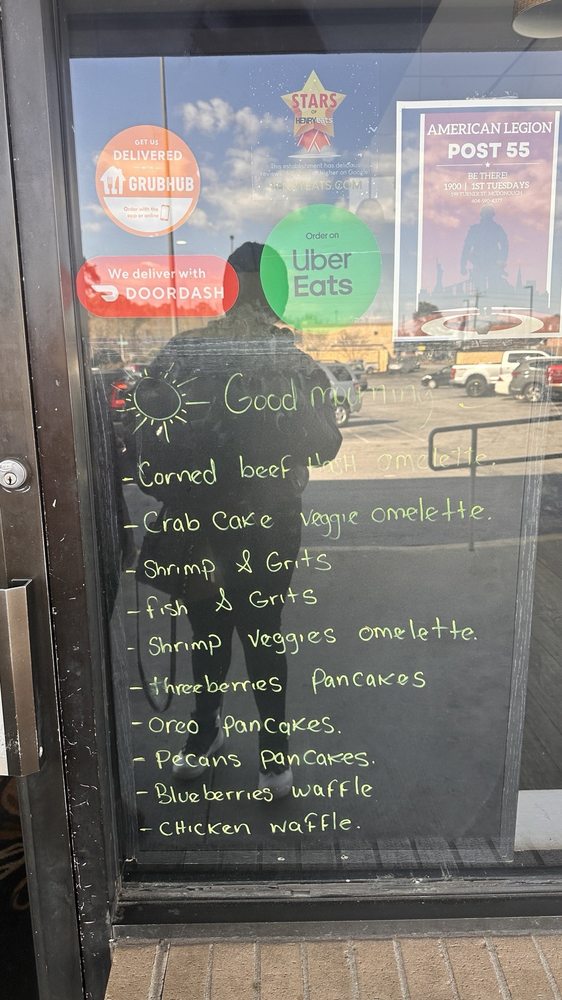 STARS
OF
HENRY eats
This establishment has delicious
EATS.COM
GET US
DELIVERED
GRUBHUB
Order with the
app or online
We deliver with
DOORDASH
Order on
Uber
Eats
AMERICAN LEGION
POST 55
BE THERE!
1900 | 1ST TUESDAYS
Good morning
- Corned beef Hash omelette.
- Crab Cake veggie omelette.
- Shrimp & Grits
- fish & Grits
- Shrimp veggies omelette.
- threeberries Pancakes
- Oreo pancakes.
- Pecans Pancakes.
- Blueberries waffle
- CHICKEN waffle.